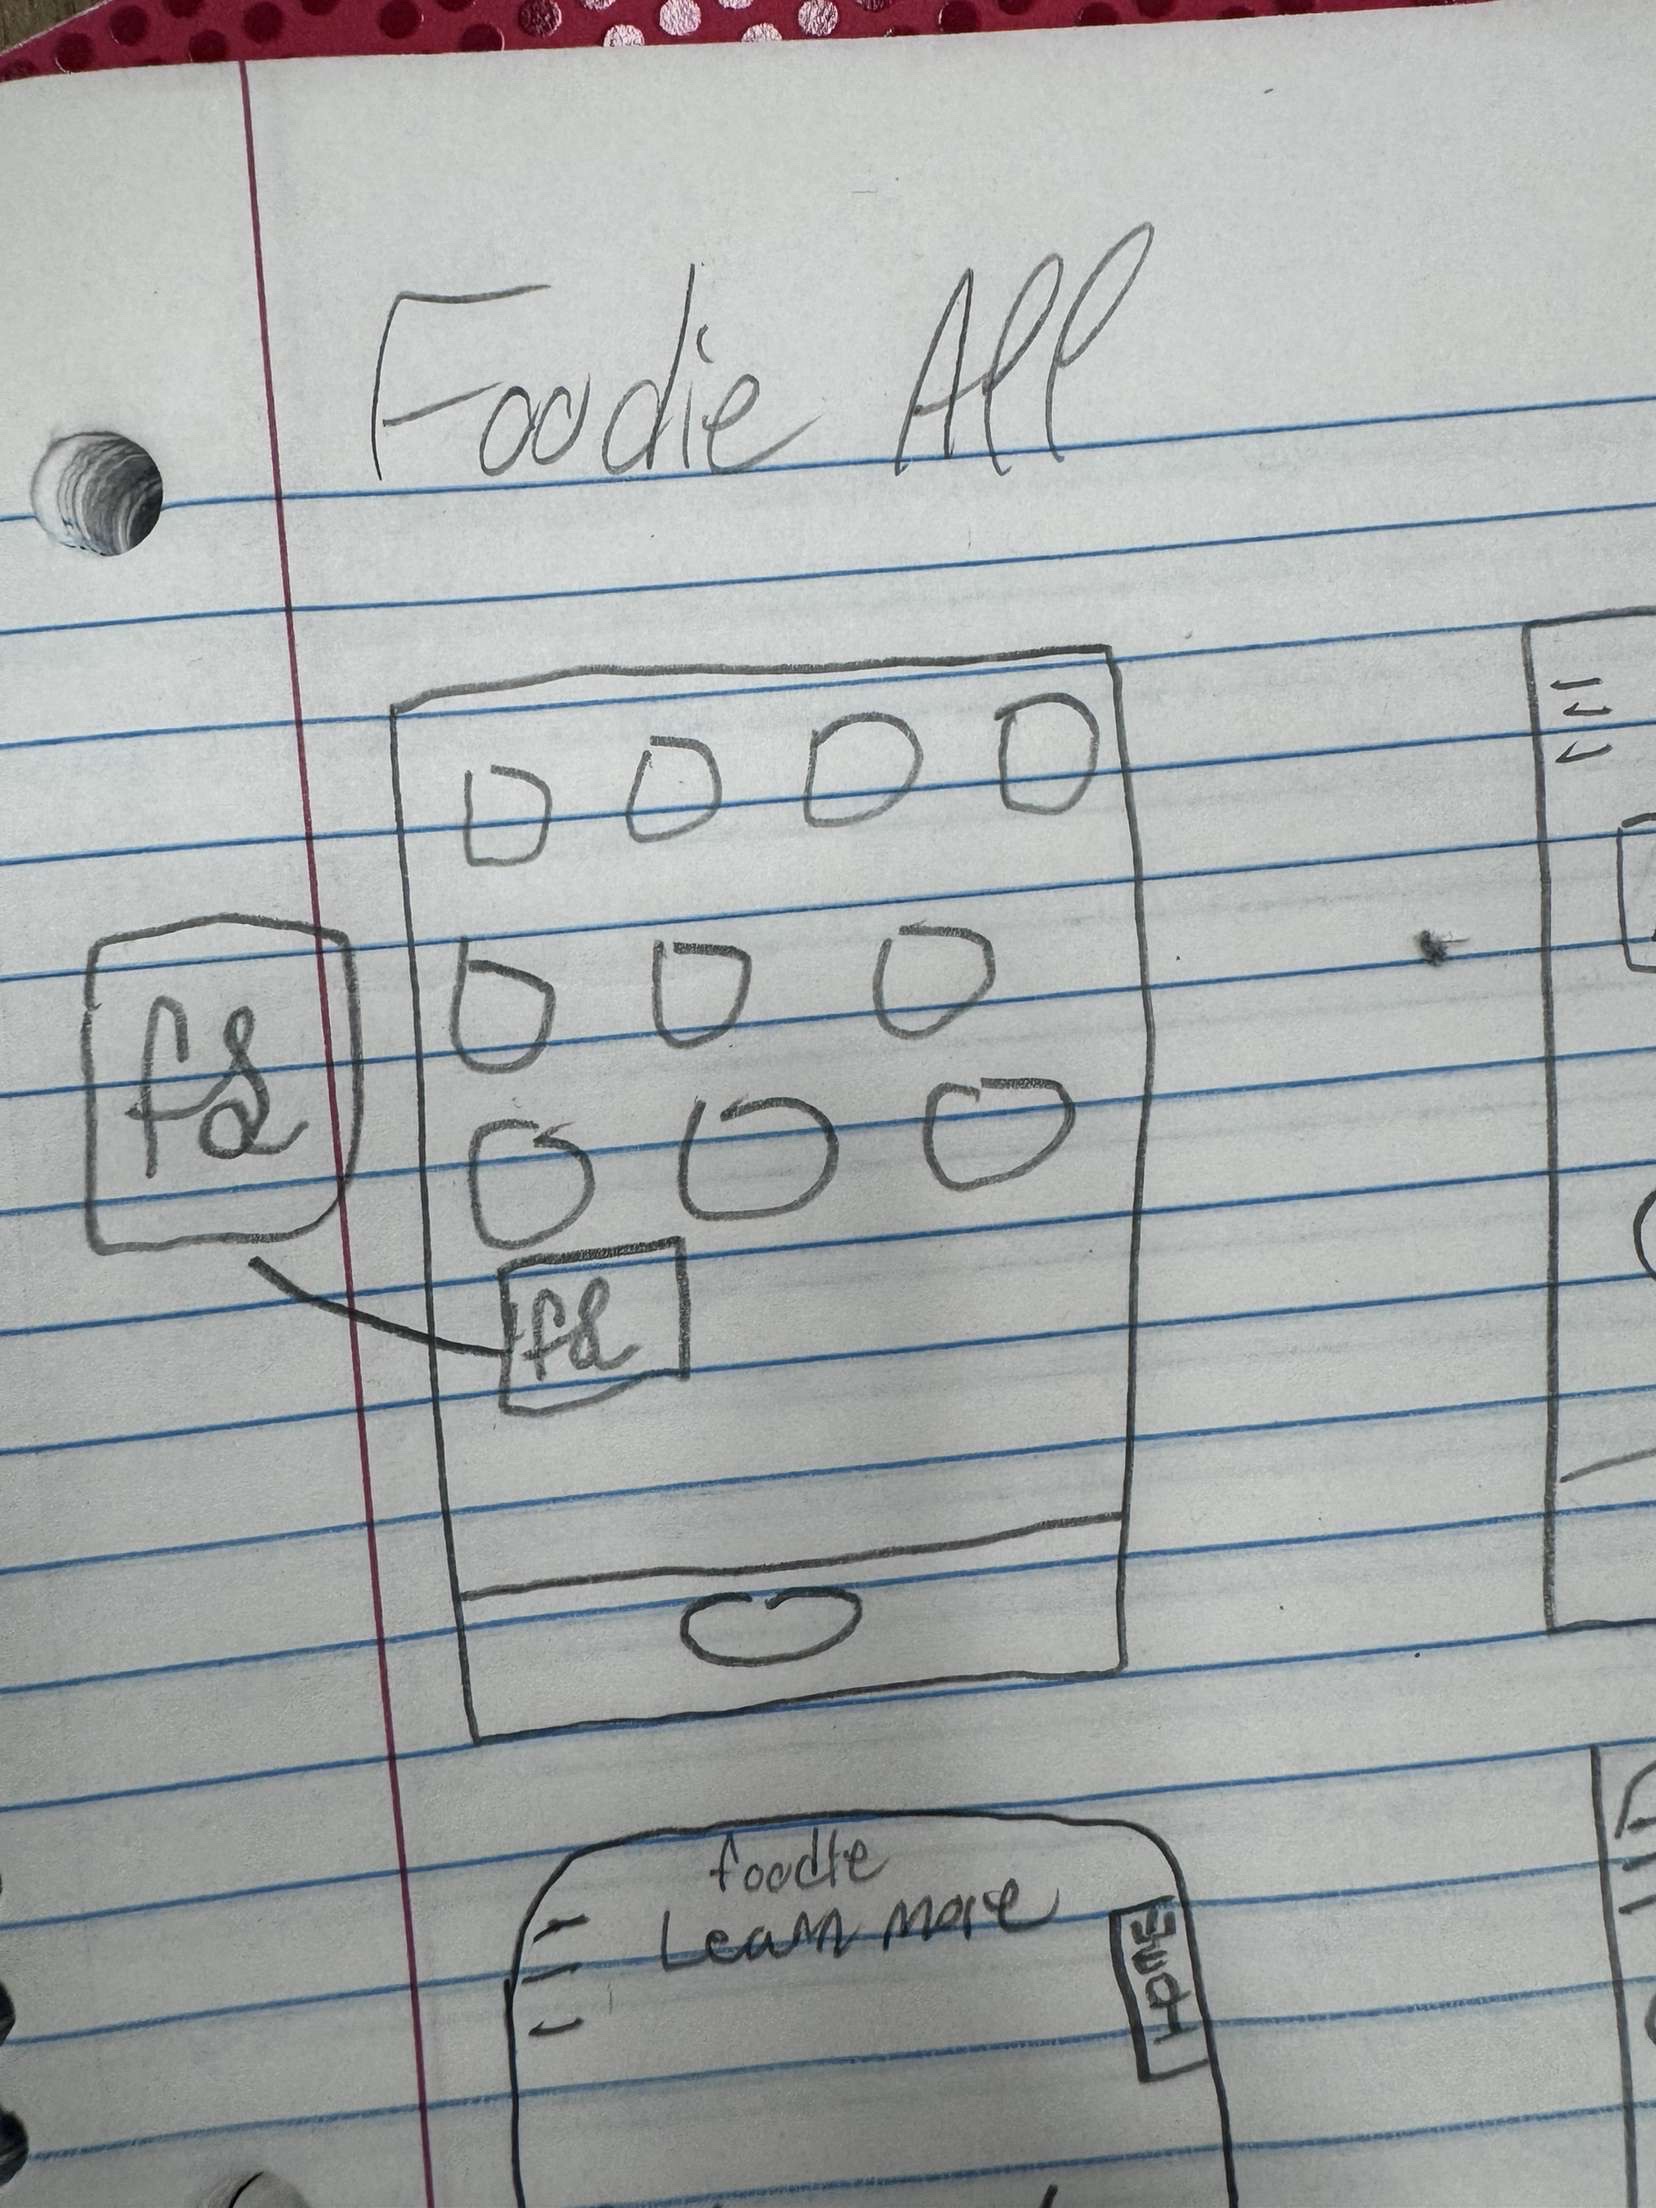 Foodie All
fd
fd
foodie
Learn more
HOME